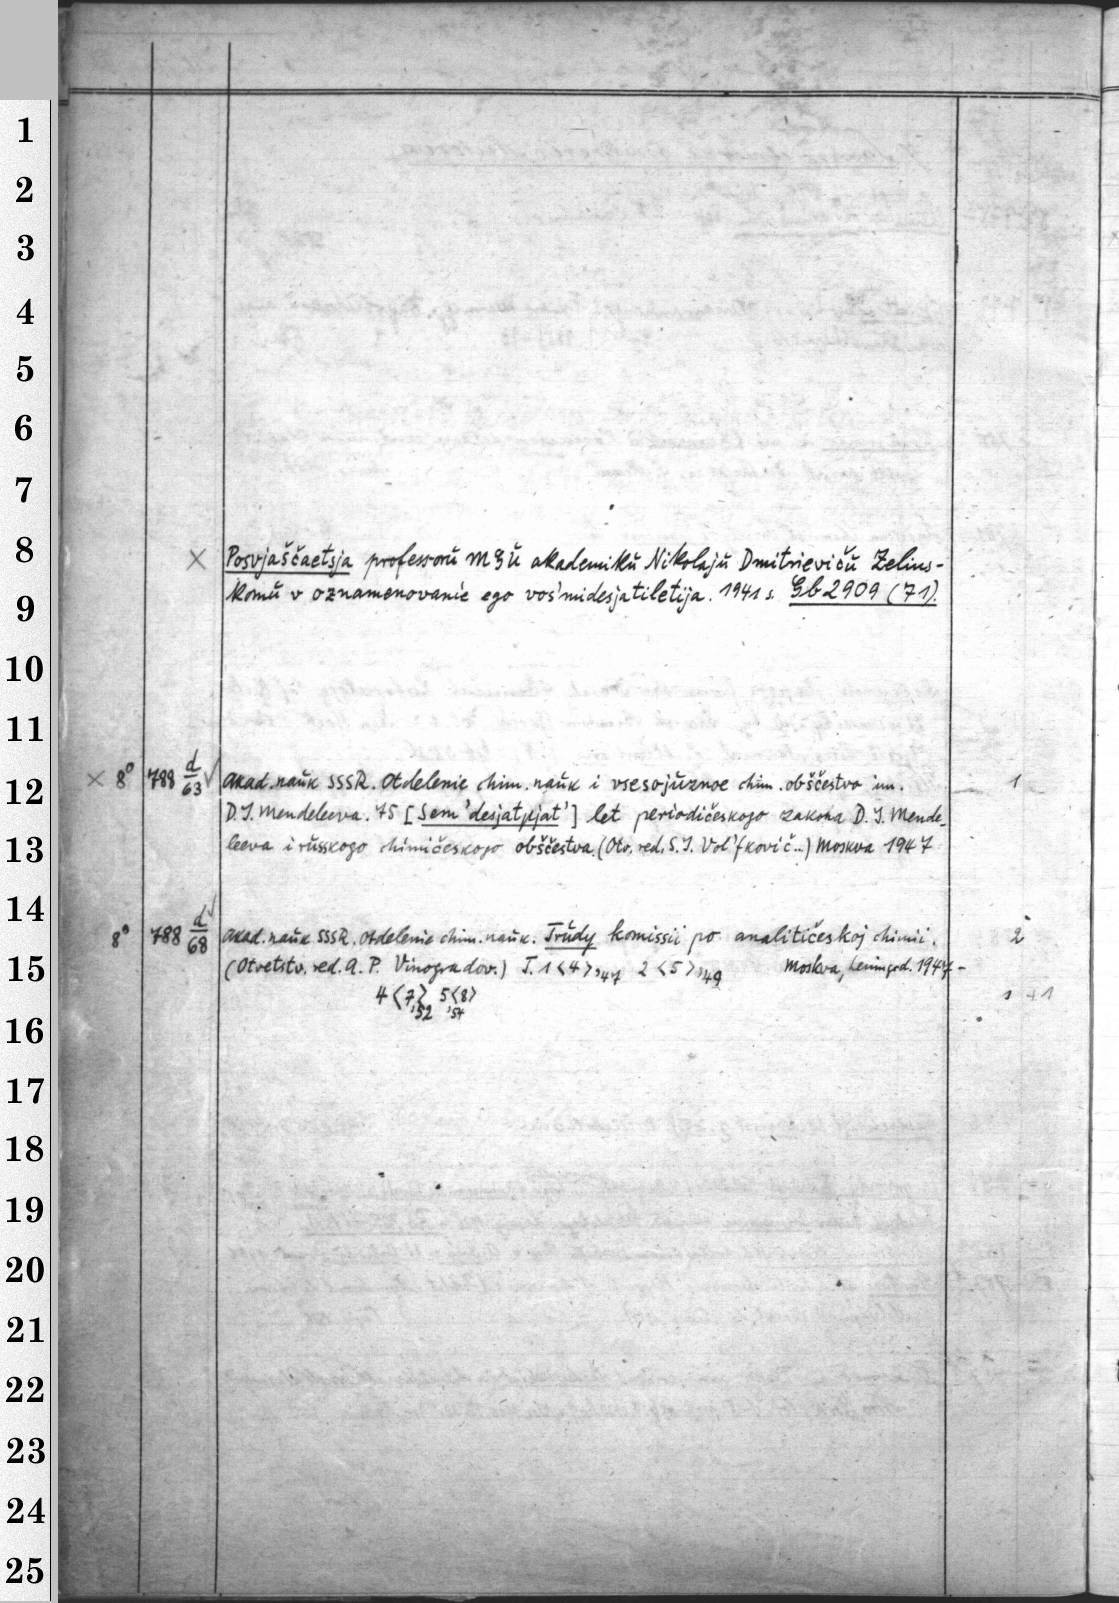 1
2
3
4
5
6
7
8
9
10
11
12
13
14
15
16
17
18
19
20
21
22
23
24
25
× Posvjaščaetsja professoru MGU akademiku Nikolaju Dmitrieviču Zelins-
komu v oznamenovanie ego vos'midesjatiletija. 1941 s. Gb 2909 (71).
× 8° 788 d/63 √ Akad. nauk SSSR. Otdelenie chim. nauk i vsesojuznoe chim. obščestvo im. 1
D. I. Mendeleeva. 75 [Sem'desjatpjat'] let periodičeskogo zakona D. I. Mende-
leeva i russkogo chimičeskogo obščestva. (Otv. red. S. I. Vol'fkovič...) Moskva 1947
8° 788 d/68 √ Akad. nauk SSSR. Otdelenie chim. nauk. Trudy komissii po analitičeskoj chimii. 2
(Otvetstv. red. A. P. Vinogradov.) T. 1<4>,'47 2<5>,'49 Moskva, Leningrd. 1947-
4<7>,'52 5<8>'54 1 + 1